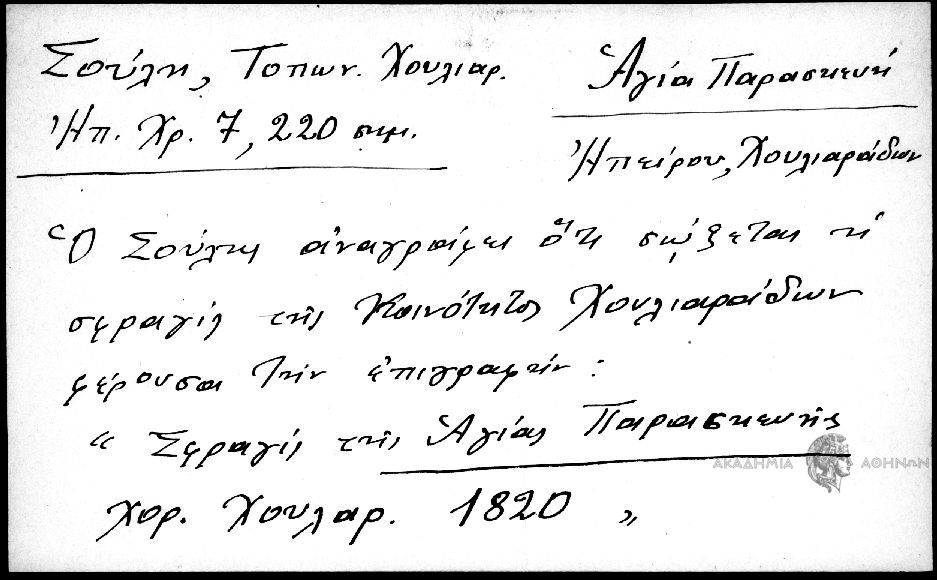 Σούλη, Τοπων. Χουλιαρ.
Ἠπ. Χρ. 7, 220 σημ.
Ἁγία Παρασκευή
Ἠπείρου, Χουλιαράδων
Ὁ Σούλης ἀναγράφει ὅτι σῴζεται ἡ
σφραγὶς τῆς Κοινότητος Χουλιαράδων
φέρουσα τὴν ἐπιγραφήν:
“ Σφραγὶς τῆς Ἁγίας Παρασκευῆς
Χορ. Χουλαρ. 1820 „
ΑΚΑΔΗΜΙΑ ΑΘΗΝΩΝ